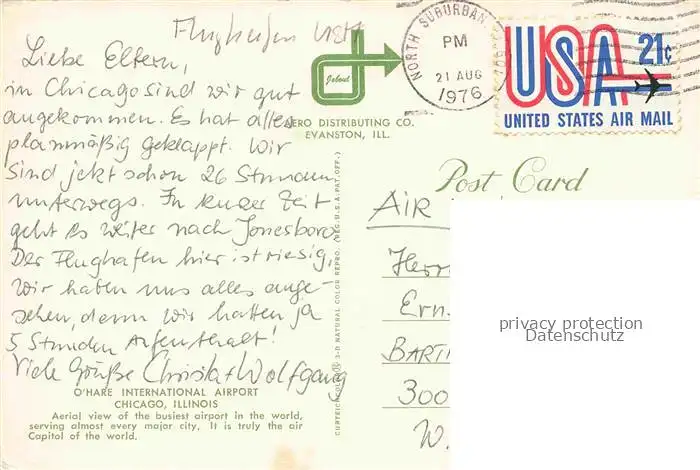 Flughafen
Liebe Eltern,
in Chicago sind wir gut
angekommen. Es hat alles
planmäßig geklappt. Wir
sind jetzt schon 26 Stunden
unterwegs. In kurzer Zeit
geht es weiter nach Jonesboro.
Der Flughafen hier ist riesig,
wir haben uns alles ange-
sehen, denn wir hatten ja
5 Stunden Aufenthalt!
Viele Grüße Christa + Wolfgang
O'HARE INTERNATIONAL AIRPORT
CHICAGO, ILLINOIS
Aerial view of the busiest airport in the world,
serving almost every major city. It is truly the air
Capitol of the world.
AERO DISTRIBUTING CO.
EVANSTON, ILL.
3-D NATURAL COLOR REPRO. (REG. U.S.A. PAT. OFF.)
NORTH SUBURBAN
PM
21 AUG
1976
USA 21c
UNITED STATES AIR MAIL
Post Card
AIR
Herr
Ern
BARTI
300
W.
privacy protection
Datenschutz